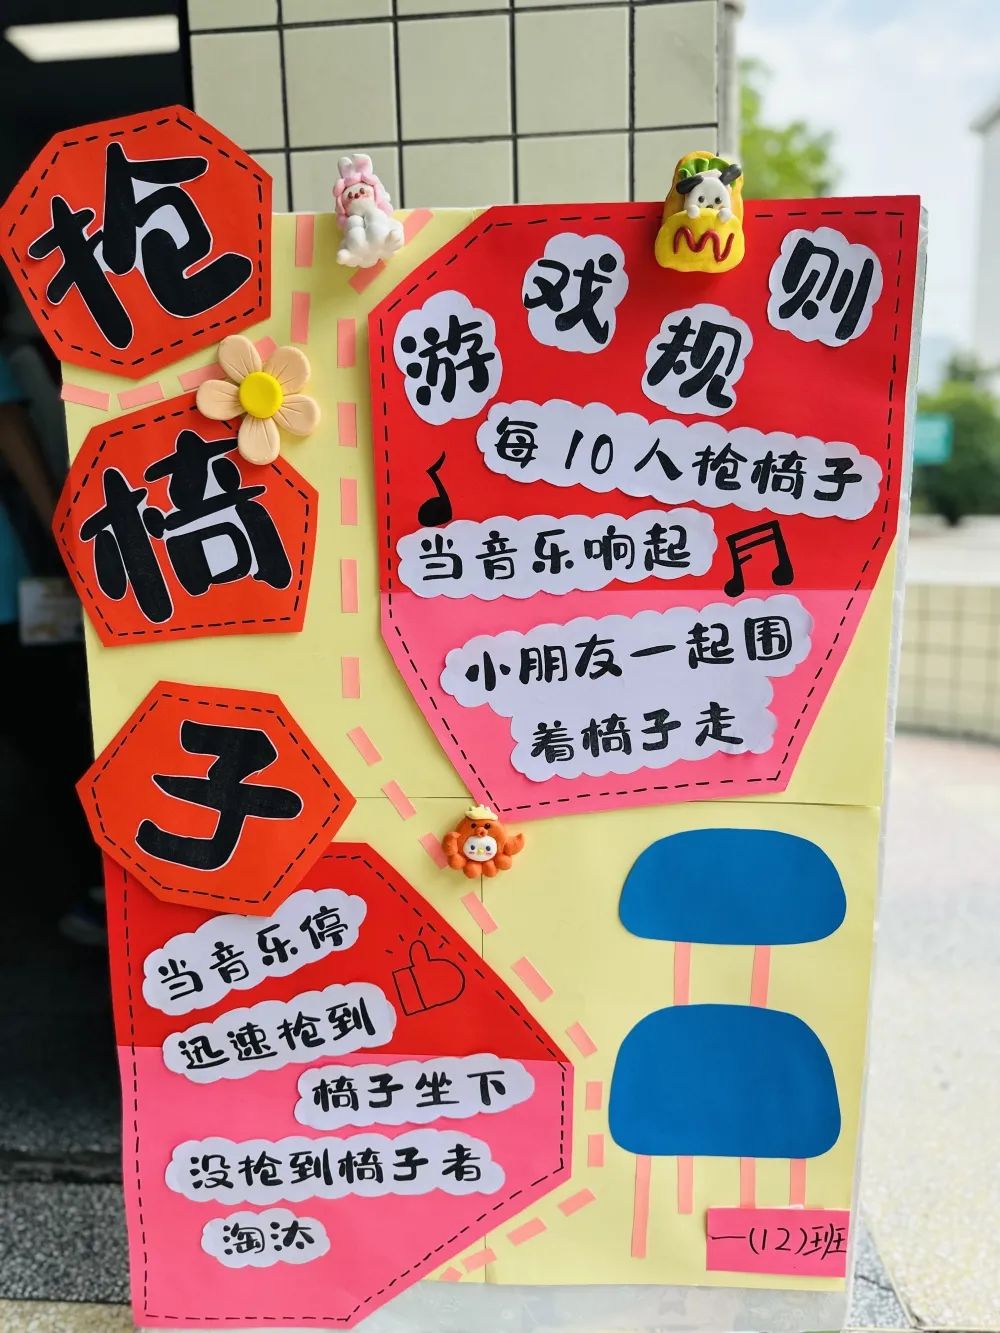 抢
椅
子
游戏规则
每10人抢椅子
当音乐响起
小朋友一起围
着椅子走
当音乐停
迅速抢到
椅子坐下
没抢到椅子者
淘汰
一(12)班